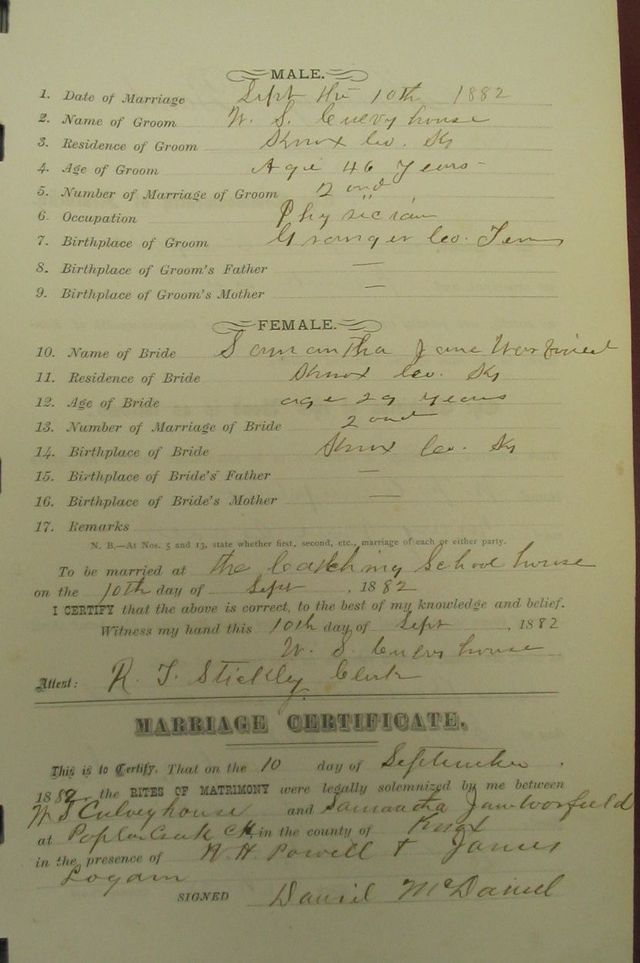 MALE.
1. Date of Marriage Sept the 10th 1882
2. Name of Groom W. S. Culvyhouse
3. Residence of Groom Knox Co. Ky
4. Age of Groom Age 46 Years
5. Number of Marriage of Groom 2 ond
6. Occupation Physician
7. Birthplace of Groom Granger Co. Tenn
8. Birthplace of Groom's Father —
9. Birthplace of Groom's Mother —
FEMALE.
10. Name of Bride Samantha Jane
11. Residence of Bride Knox Co. Ky
12. Age of Bride age 29 years
13. Number of Marriage of Bride 2 ond
14. Birthplace of Bride Knox Co. Ky
15. Birthplace of Bride's Father —
16. Birthplace of Bride's Mother —
17. Remarks
N. B.—At Nos. 5 and 13, state whether first, second, etc., marriage of each or either party.
To be married at the School house
on the 10th day of Sept, 1882
I CERTIFY that the above is correct, to the best of my knowledge and belief.
Witness my hand this 10th day of Sept, 1882
W. S. Culvyhouse
Attest: R. T. Stickly Clerk
MARRIAGE CERTIFICATE.
This is to Certify, That on the 10 day of September.
1882, the RITES OF MATRIMONY were legally solemnized by me between
W S Culveyhouse and Samantha Jane Worfield
at Poplar Creak CH, in the county of Knox
in the presence of H. Powell + James
Logan
SIGNED Daniel McDaniel